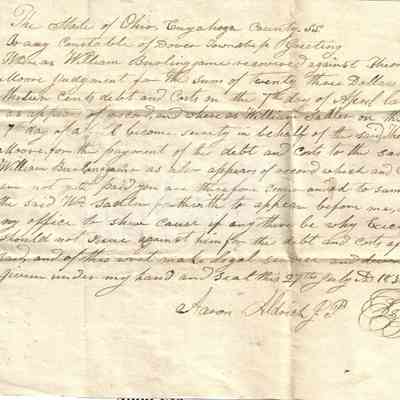 The State of Ohio, Cuyahoga County SS
To any Constable of Dover Township Greeting
Whereas William Burlingame recovered against
Moore judgment for the sum of twenty three Dollars
cents debt and Costs on the 7th day of April
as appears of record, and whereas William Sadler on the
7 day of become security in behalf of the said
Moore, for the payment of the debt and costs to the
William Burlingame as also appears of record which said
is not yet paid you are therefore commanded to
the said Wm Sadler forthwith to appear before me,
my office to shew cause if any there be why
should not issue against him for the debt and costs
and of this writ make legal service
given under my hand and seal this 27th July AD 183
Aaron Aldrich J.P.